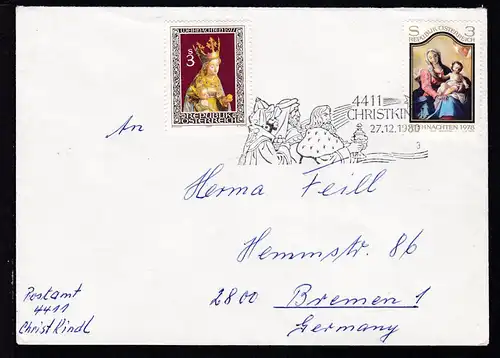 WEIHNACHTEN 1977
S 3
REPUBLIK
ÖSTERREICH
S 3
REPUBLIK ÖSTERREICH
WEIHNACHTEN 1978
4411
CHRISTKIN
27.12.1980
3
An
Herma Feill
Hemmstr. 86
2800 Bremen 1
Germany
Postamt
4411
Christkindl